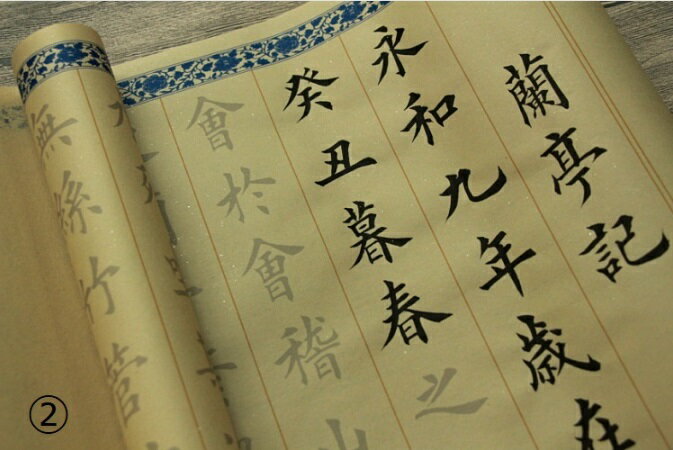 蘭亭記
永和九年歲在
癸丑暮春之
會於會稽山
無絲竹管
②